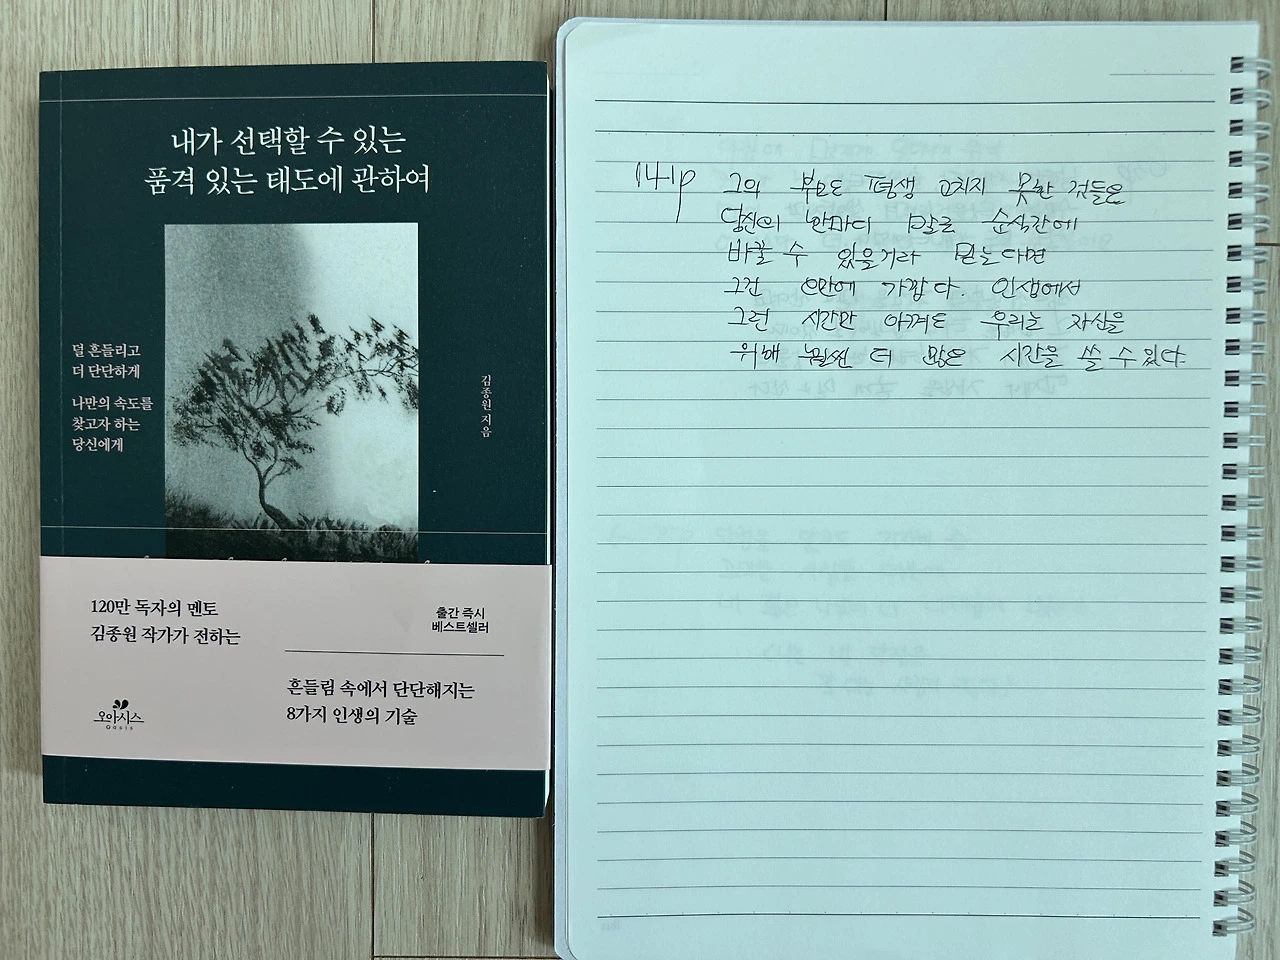 내가 선택할 수 있는
품격 있는 태도에 관하여
덜 흔들리고
더 단단하게
나만의 속도를
찾고자 하는
당신에게
김종원 지음
120만 독자의 멘토
김종원 작가가 전하는
출간 즉시
베스트셀러
흔들림 속에서 단단해지는
8가지 인생의 기술
오아시스
oasis
141p 그의 부모도 평생 고치지 못한 것들을
당신의 한마디 말로 순식간에
바꿀 수 있을거라 믿는다면
그건 오만에 가깝다. 인생에서
그런 시간만 아껴도 우리는 자신을
위해 훨씬 더 많은 시간을 쓸 수 있다.